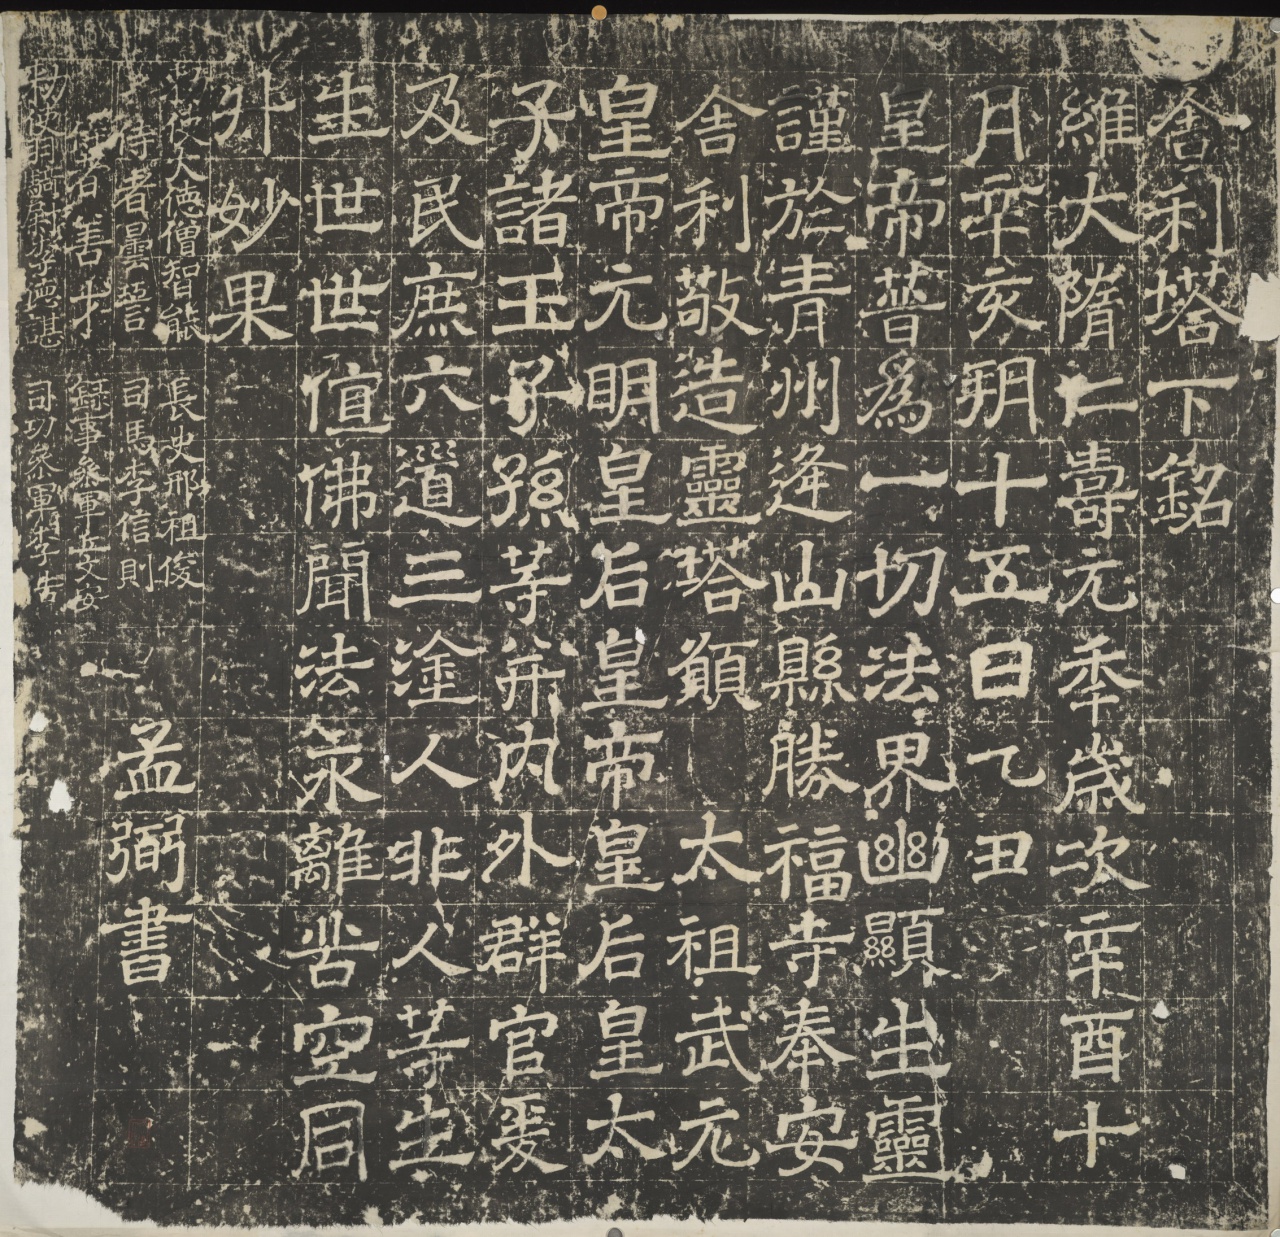 舍利塔下銘
維大隋仁壽元秊歲次辛酉十
月辛亥朔十五日乙丑
皇帝普為一切法界幽顯生靈
謹於青州逄山縣勝福寺奉安
舍利敬造靈塔願 太祖武元
皇帝元明皇后皇帝皇后皇太
子諸王子孫等并內外群官爰
及民庶六道三塗人非人等生
生世世值佛聞法永離苦空同
升妙果
孟弼書
大德僧智能
侍者曇
善才
羽騎尉
長史邢祖俊
司馬李信則
錄事參軍丘文安
司功參軍李佶